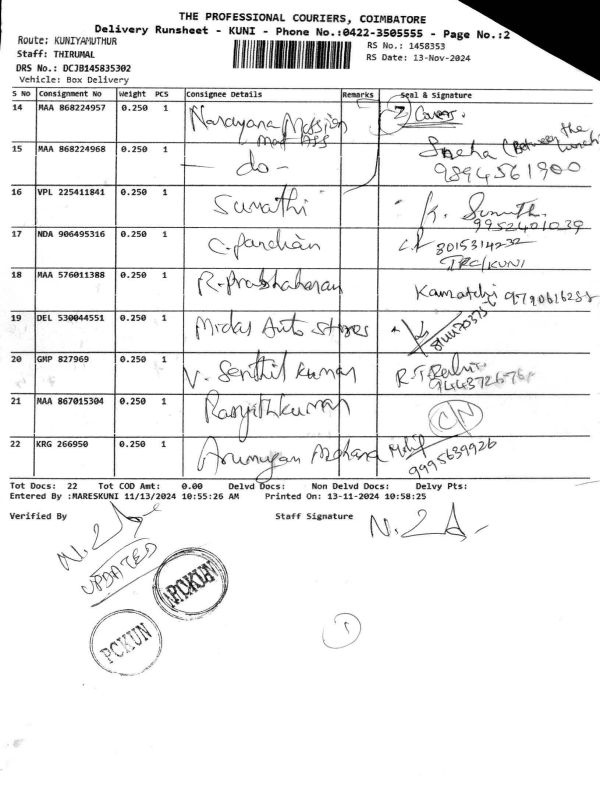 THE PROFESSIONAL COURIERS, COIMBATORE
Delivery Runsheet - KUNI - Phone No.:0422-3505555 - Page No.:2
Route: KUNIYAMUTHUR
Staff: THIRUMAL
DRS No.: DCJB145835302
Vehicle: Box Delivery
RS No.: 1458353
RS Date: 13-Nov-2024
S No Consignment No Weight PCS Consignee Details Remarks Seal & Signature
14 MAA 868224957 0.250 1 Narayana Mission 2 Covers.
15 MAA 868224968 0.250 1 - do - Sneha (Between the
9894561900
16 VPL 225411841 0.250 1 Sumathi K.
9952401039
17 NDA 906495316 0.250 1 C. Pandian
8015314232
18 MAA 576011388 0.250 1 R. Prabhaharan Kamatchi
19 DEL 530044551 0.250 1 Midas Auto Stores
20 GMP 827969 0.250 1 V. Senthil kumar
21 MAA 867015304 0.250 1 Ranjithkumar CN
22 KRG 266950 0.250 1 Arumugam
9995639926
Tot Docs: 22 Tot COD Amt: 0.00 Delvd Docs: Non Delvd Docs: Delvy Pts:
Entered By :MARESKUNI 11/13/2024 10:55:26 AM Printed On: 13-11-2024 10:58:25
Verified By Staff Signature
UPDATED
PCKUN
PCKUN